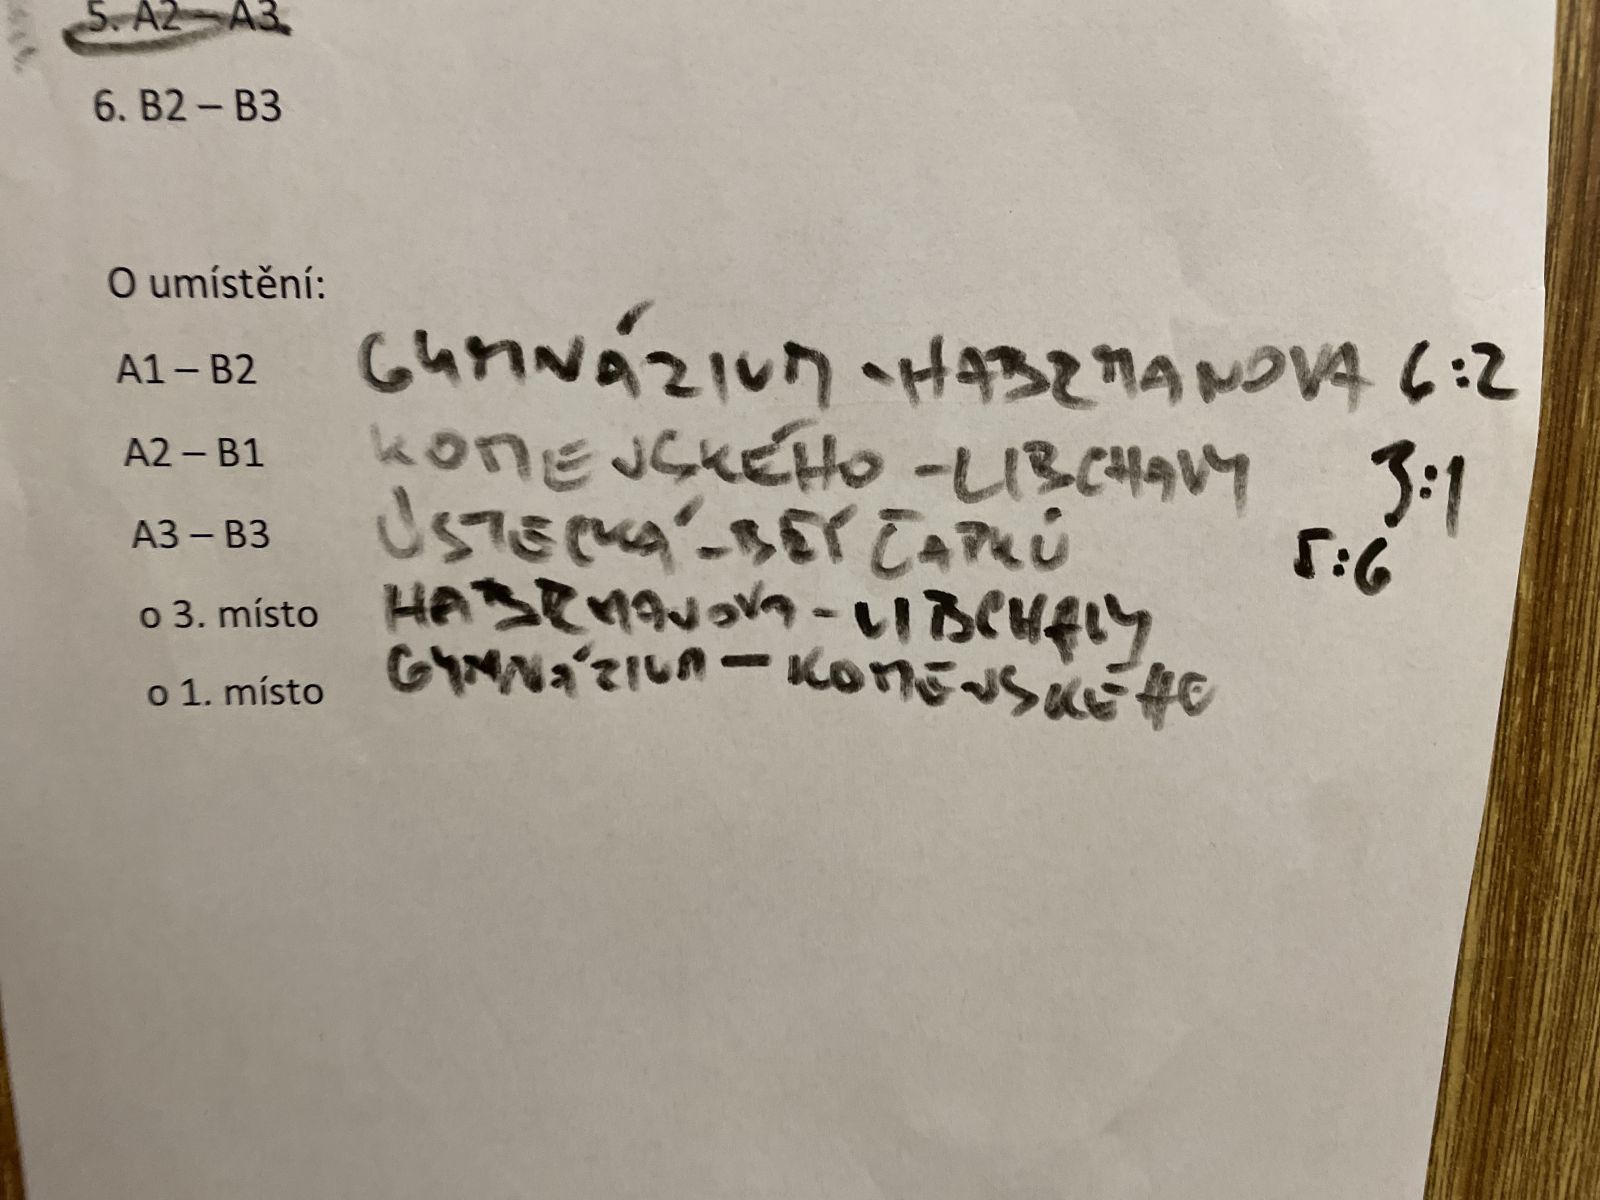 5. A2 – A3
6. B2 – B3
O umístění:
A1 – B2 GYMNÁZIUM - HABRMANOVA 6:2
A2 – B1 KOMENSKÉHO - LIBCHAVY 3:1
A3 – B3 ÚSTECKÁ - BŘÍ ČAPKŮ 5:6
o 3. místo HABRMANOVA - LIBCHAVY
o 1. místo GYMNÁZIUM - KOMENSKÉHO